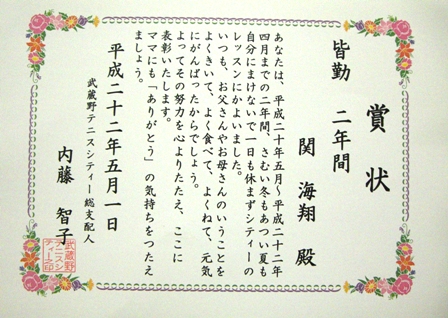 賞状
皆勤 二年間
関 海翔 殿
あなたは、平成二十年五月～平成二十二年
四月までの二年間、さむい冬もあつい夏も
自分にまけないで一日も休まずシティーの
レッスンにかよいました。
いつも、お父さんやお母さんのいうことを
よくきいて、よく食べて、よくねて、元気
にがんばったからでしょう。
よってその努力を心よりたたえ、ここに
表彰いたします。
ママにも「ありがとう」の気持ちをつたえ
ましょう。
平成二十二年五月一日
武蔵野テニスシティー総支配人
内藤 智子
武蔵野
テニスシ
ティー印